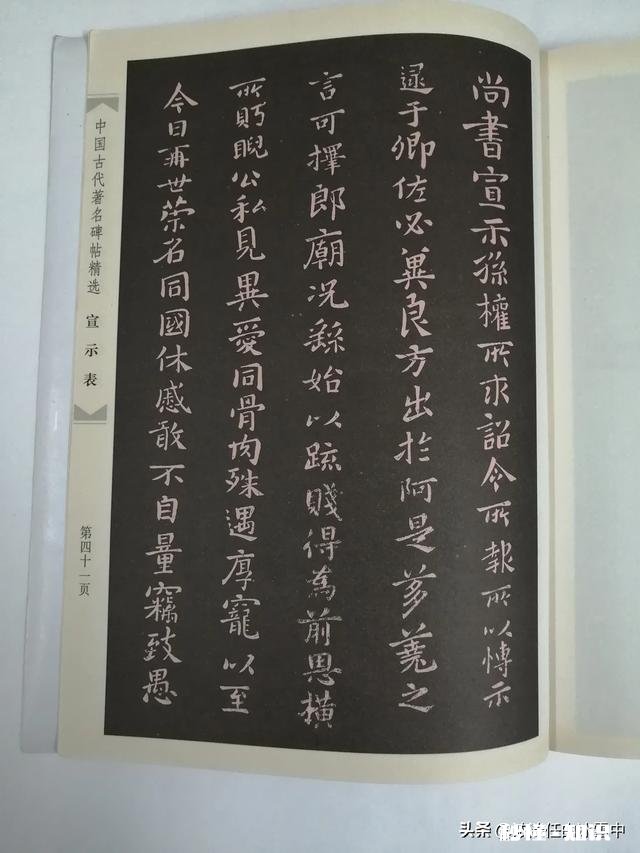 尚書宣示孫權所求詔令所報所以博示
逮于卿佐必冀良方出於阿是芻蕘之
言可擇郎廟況繇始以疏賤得為前恩橫
所眄睨公私見異愛同骨肉殊遇厚寵以至
今日再世榮名同國休慼敢不自量竊致愚
中国古代著名碑帖精选 宣示表
第四十一页
头条